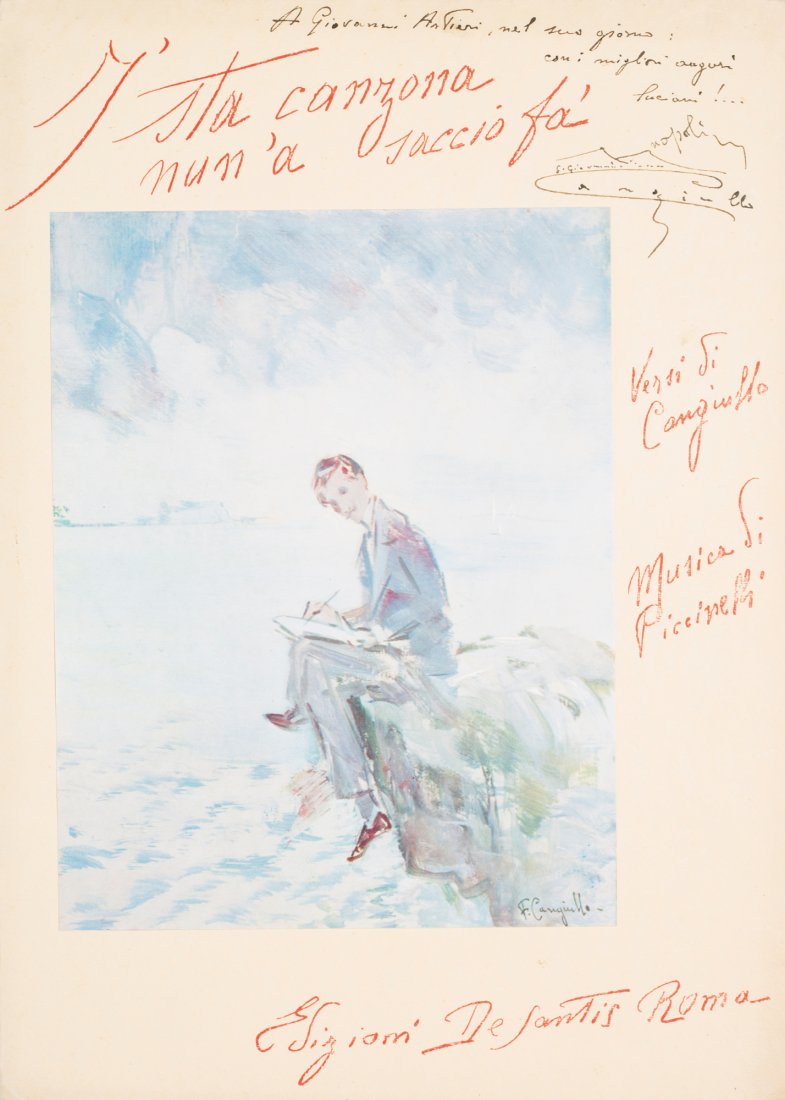 A Giovanni Artieri, nel suo giorno:
con i migliori auguri
I' sta canzona
nun'a saccio fá
napoli
S. Giovanni
Cangiullo
Versi di
Cangiullo
Musica di
Piccinelli
F. Cangiullo
Edizioni De Santis Roma